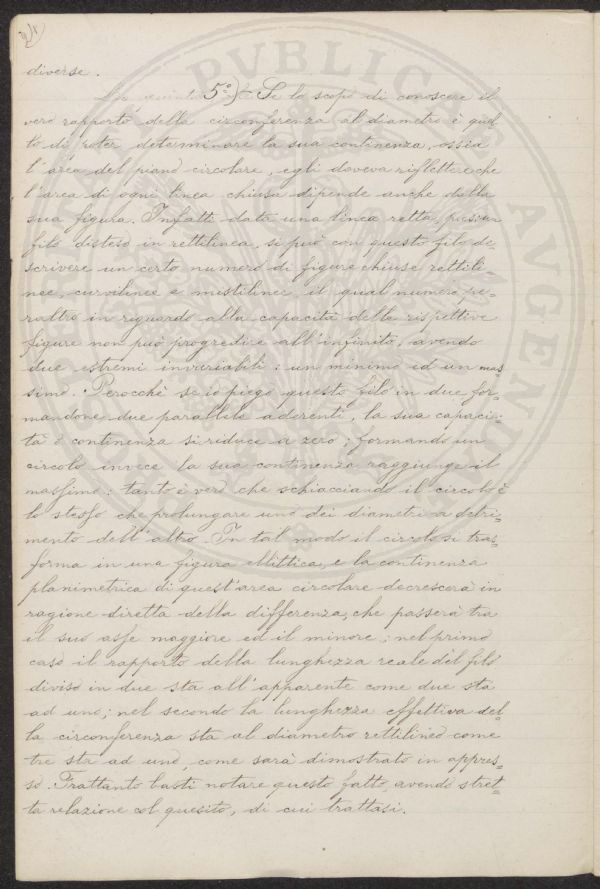 24
diverse.
5.° Se lo scopo di conoscere il
vero rapporto della circonferenza al diametro è quel
lo di poter determinare la sua continenza, ossia
l'area del piano circolare, egli doveva riflettere che
l'area di ogni linea chiusa dipende anche dalla
sua figura. Infatti data una linea retta, poscia un
filo disteso in rettilinea, si può con questo filo de-
scrivere un certo numero di figure chiuse rettili-
nee, curvilinee e mistilinee, il qual numero pe-
raltro in riguardo alla capacità delle rispettive
figure non può progredire all'infinito, avendo
due estremi invariabili: un minimo ed un mas
simo. Perocchè se io piego questo filo in due, for-
mandone due parallele aderenti, la sua capaci-
tà o continenza si riduce a zero; formando un
circolo invece la sua continenza raggiunge il
massimo: tanto è vero che schiacciando il circolo è
lo stesso che prolungare uno dei diametri a detri-
mento dell'altro. In tal modo il circolo si tras-
forma in una figura ellittica, e la continenza
planimetrica di quest'area circolare decrescerà in
ragione diretta della differenza, che passerà tra
il suo asse maggiore ed il minore; nel primo
caso il rapporto della lunghezza reale del filo
diviso in due sta all'apparente come due sta
ad uno; nel secondo la lunghezza effettiva del-
la circonferenza sta al diametro rettilineo come
tre sta ad uno, come sarà dimostrato in appres-
so. Frattanto basti notare questo fatto, avendo stret-
ta relazione col quesito, di cui trattasi.
PVBLICAE
AVGENDAE